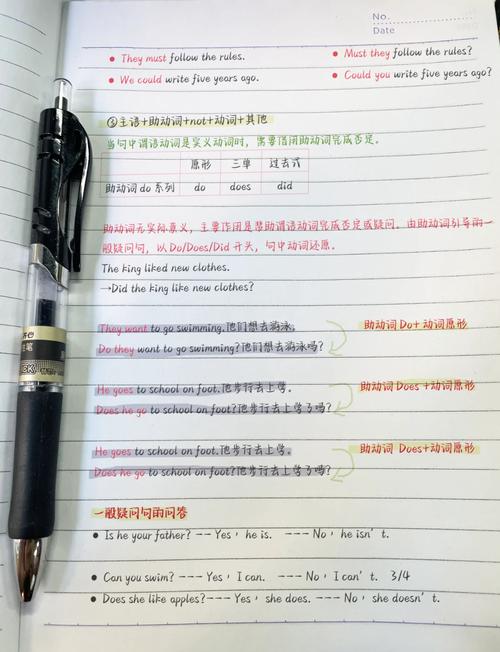 No.
Date
● They must follow the rules. ● Must they follow the rules?
● We could write five years ago. ● Could you write five years ago?
③主语+助动词+not+动词+其他
当句中谓语动词是实义动词时，需要借用助动词完成否定。
原形 三单 过去式
助动词do系列 do does did
助动词无实际意义，主要作用是帮助谓语动词完成否定或疑问。由助动词引导的一
般疑问句，以Do/Does/Did开头，句中动词还原。
The king liked new clothes.
→Did the king like new clothes?
They want to go swimming.他们想去游泳。 助动词Do+动词原形
Do they want to go swimming?他们想去游泳吗?
He goes to school on foot.他步行去上学。 助动词Does+动词原形
Does he go to school on foot?他步行去上学了吗?
He goes to school on foot.他步行去上学。 助动词 Does+动词原形
Does he go to school on foot?他步行去上学了吗?
一般疑问句的问答
● Is he your father? --- Yes，he is. --- No，he isn't.
● Can you swim? --- Yes，I can. --- No，I can't. 3/4
● Does she like apples?--- Yes，she does. --- No，she doesn't.